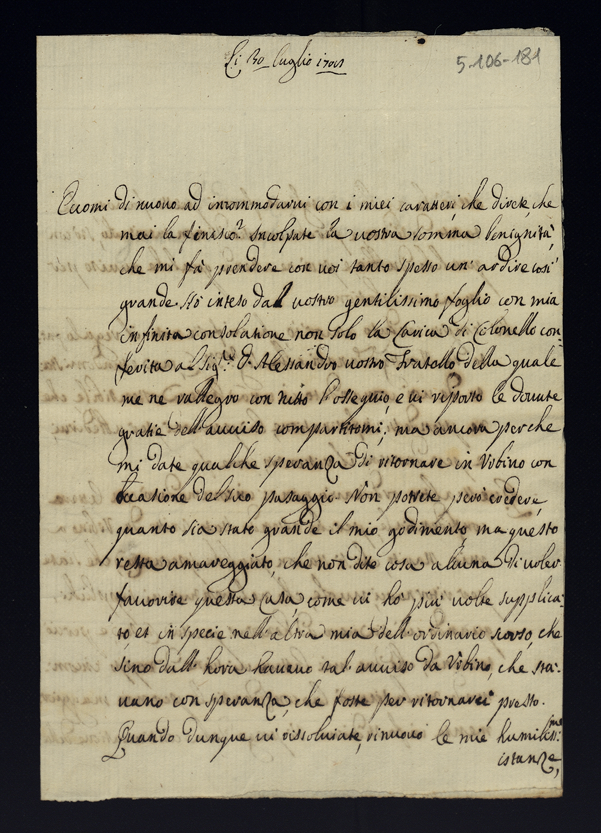 Li 30 luglio
5-106-181
Eccomi di nuovo ad incommodarvi con i miei caratteri, che direte, che
mai la finisco? Incolpate la vostra somma benignità,
che mi fà prendere con voi tanto spesso un' ardire così
grande. Hò inteso dal vostro gentilissimo foglio con mia
infinita consolatione non solo la Carica di Colonello con-
ferita al Sig.r D. Alessandro vostro Fratello della quale
me ne rallegro con tutto l'ossequio, e vi riporto le dovute
gratie dell'avviso compartitomi, ma ancora perche
mi date qualche speranza di ritornare in Urbino con
occasione del suo passaggio. Non potrete però credere,
quanto sia stato grande il mio godimento, ma questo
resta amareggiato, che non dite cosa alcuna di voler
favorire questa casa, come vi hò più volte supplica-
to, et in specie nell'altra mia dell'ordinario scorso, che
sino dall'hora havevo tal avviso da Urbino, che sta-
vano con speranza, che foste per ritornarci presto.
Quando dunque vi risolviate, rinuovo le mie humiliss.me
istanze,